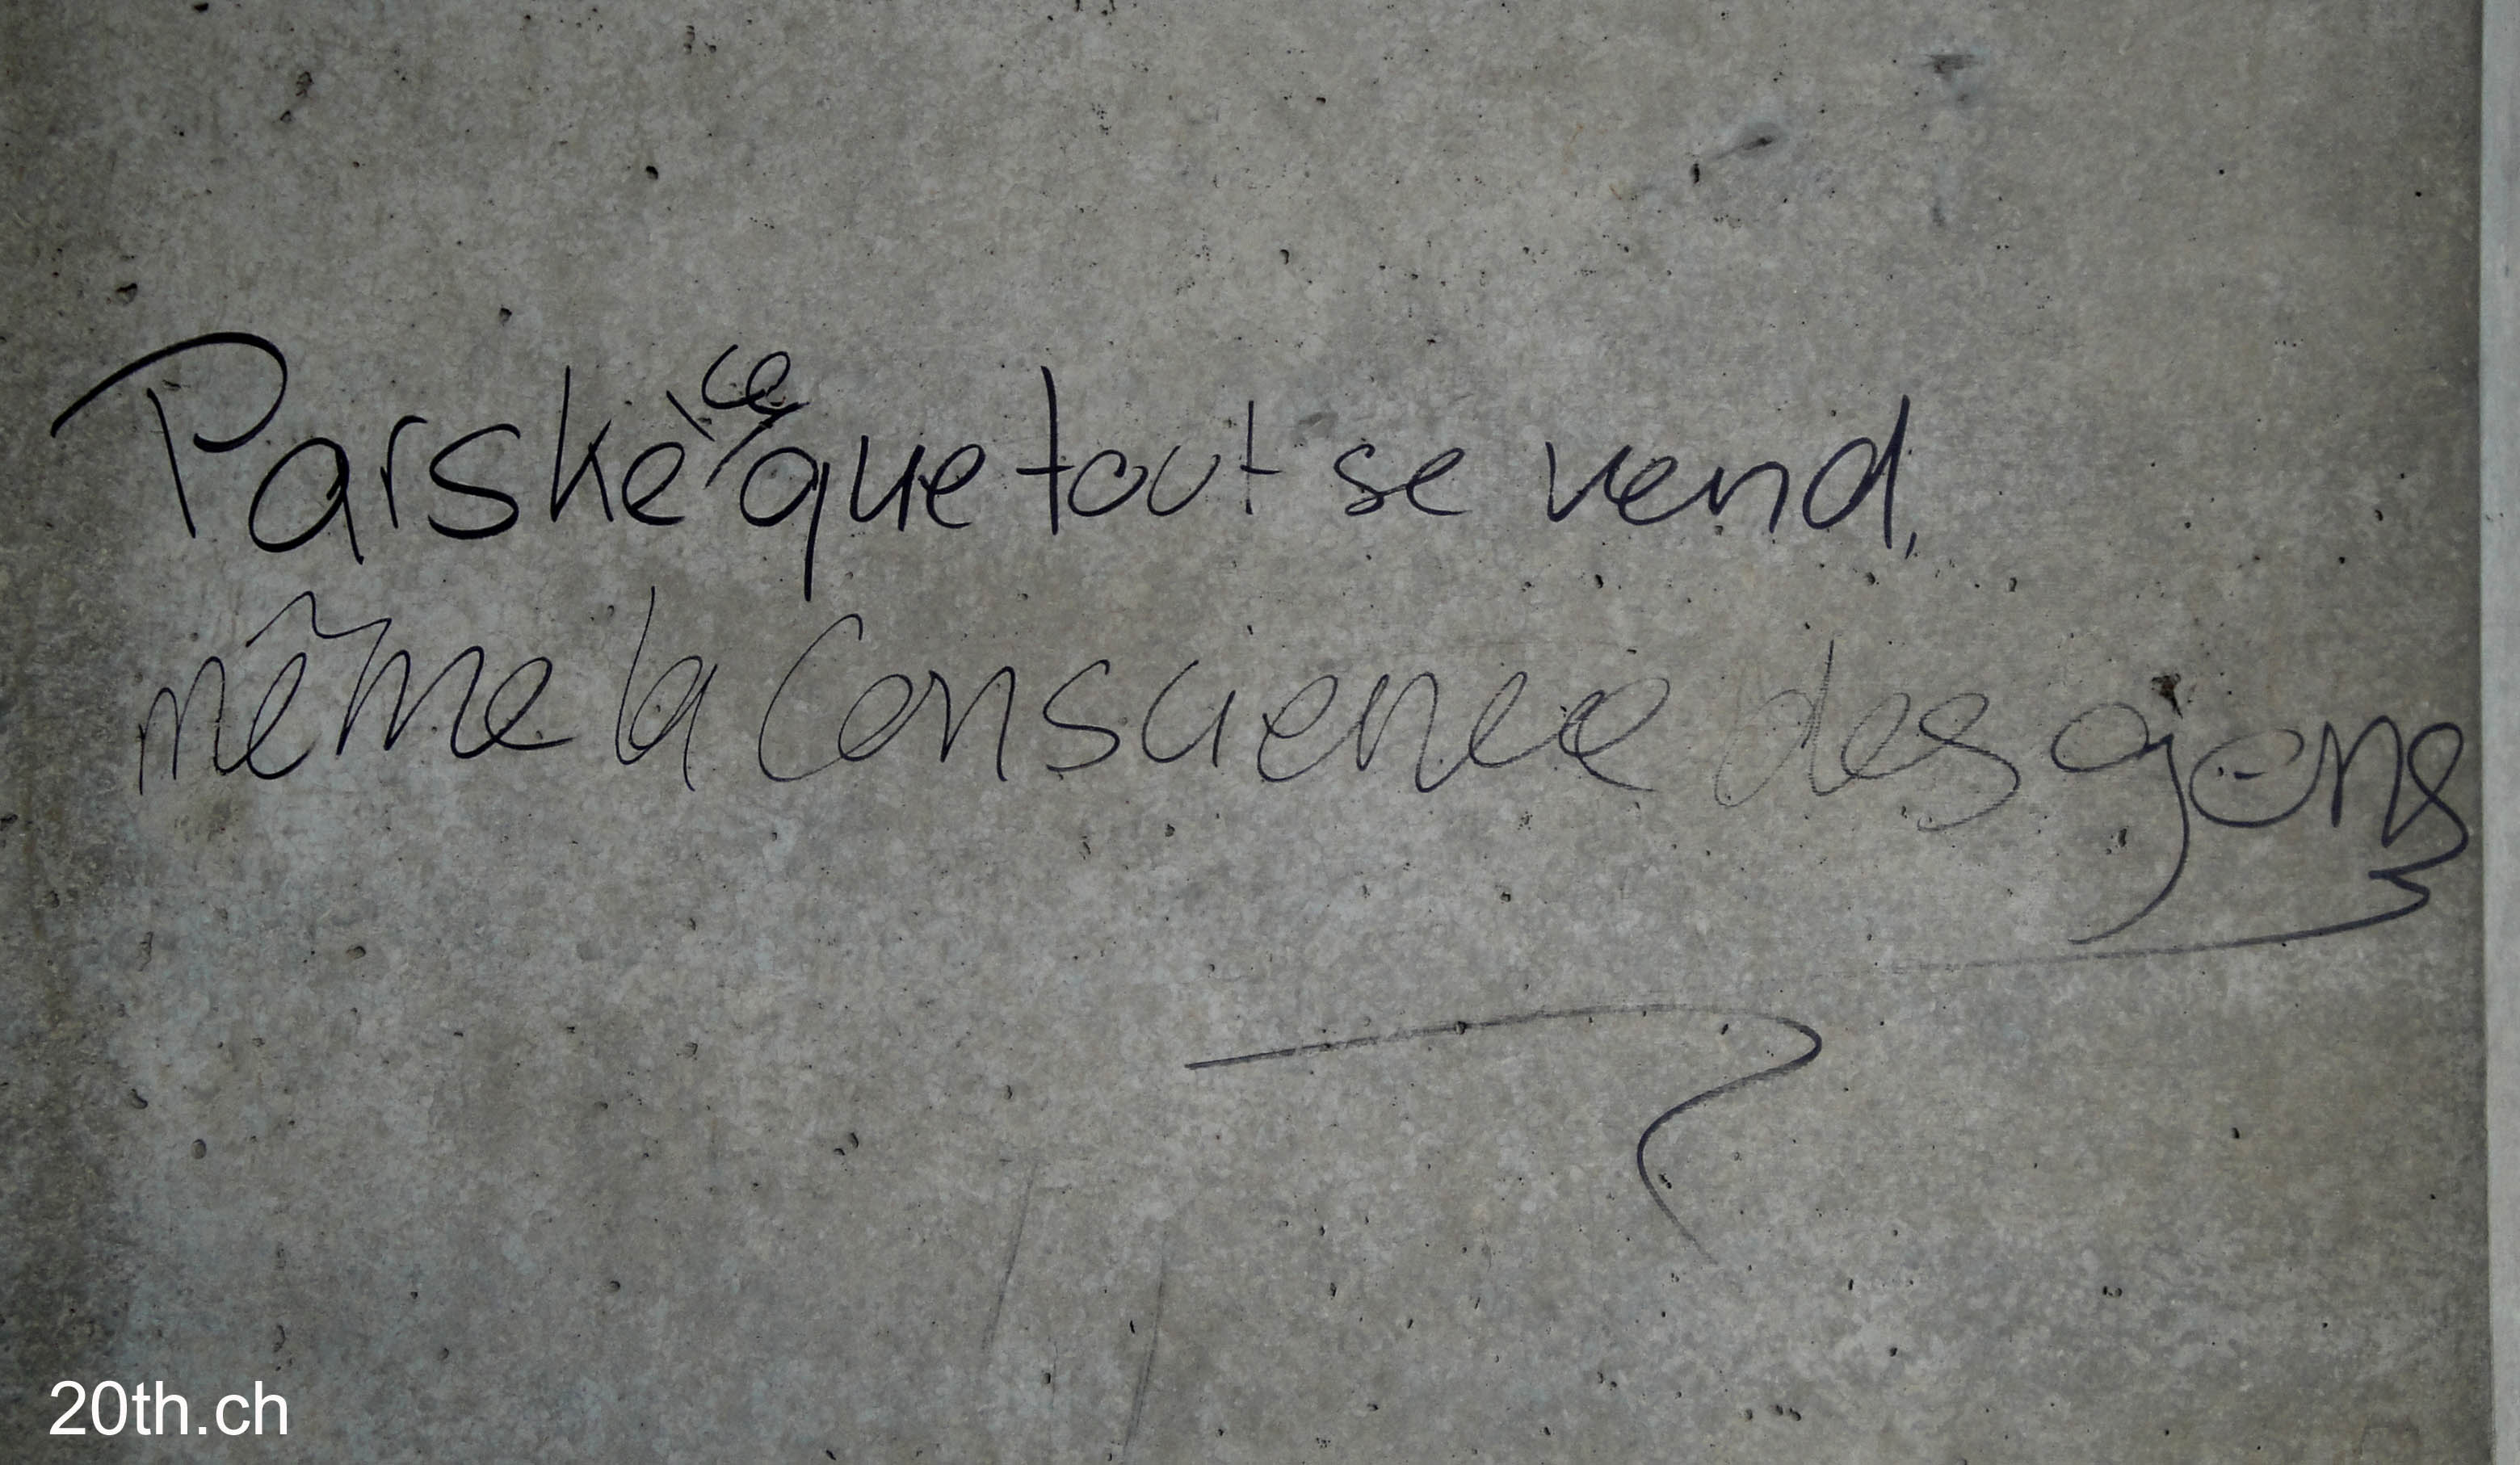 Parskè ce que tout se vend,
même la Conscience des gens
20th.ch